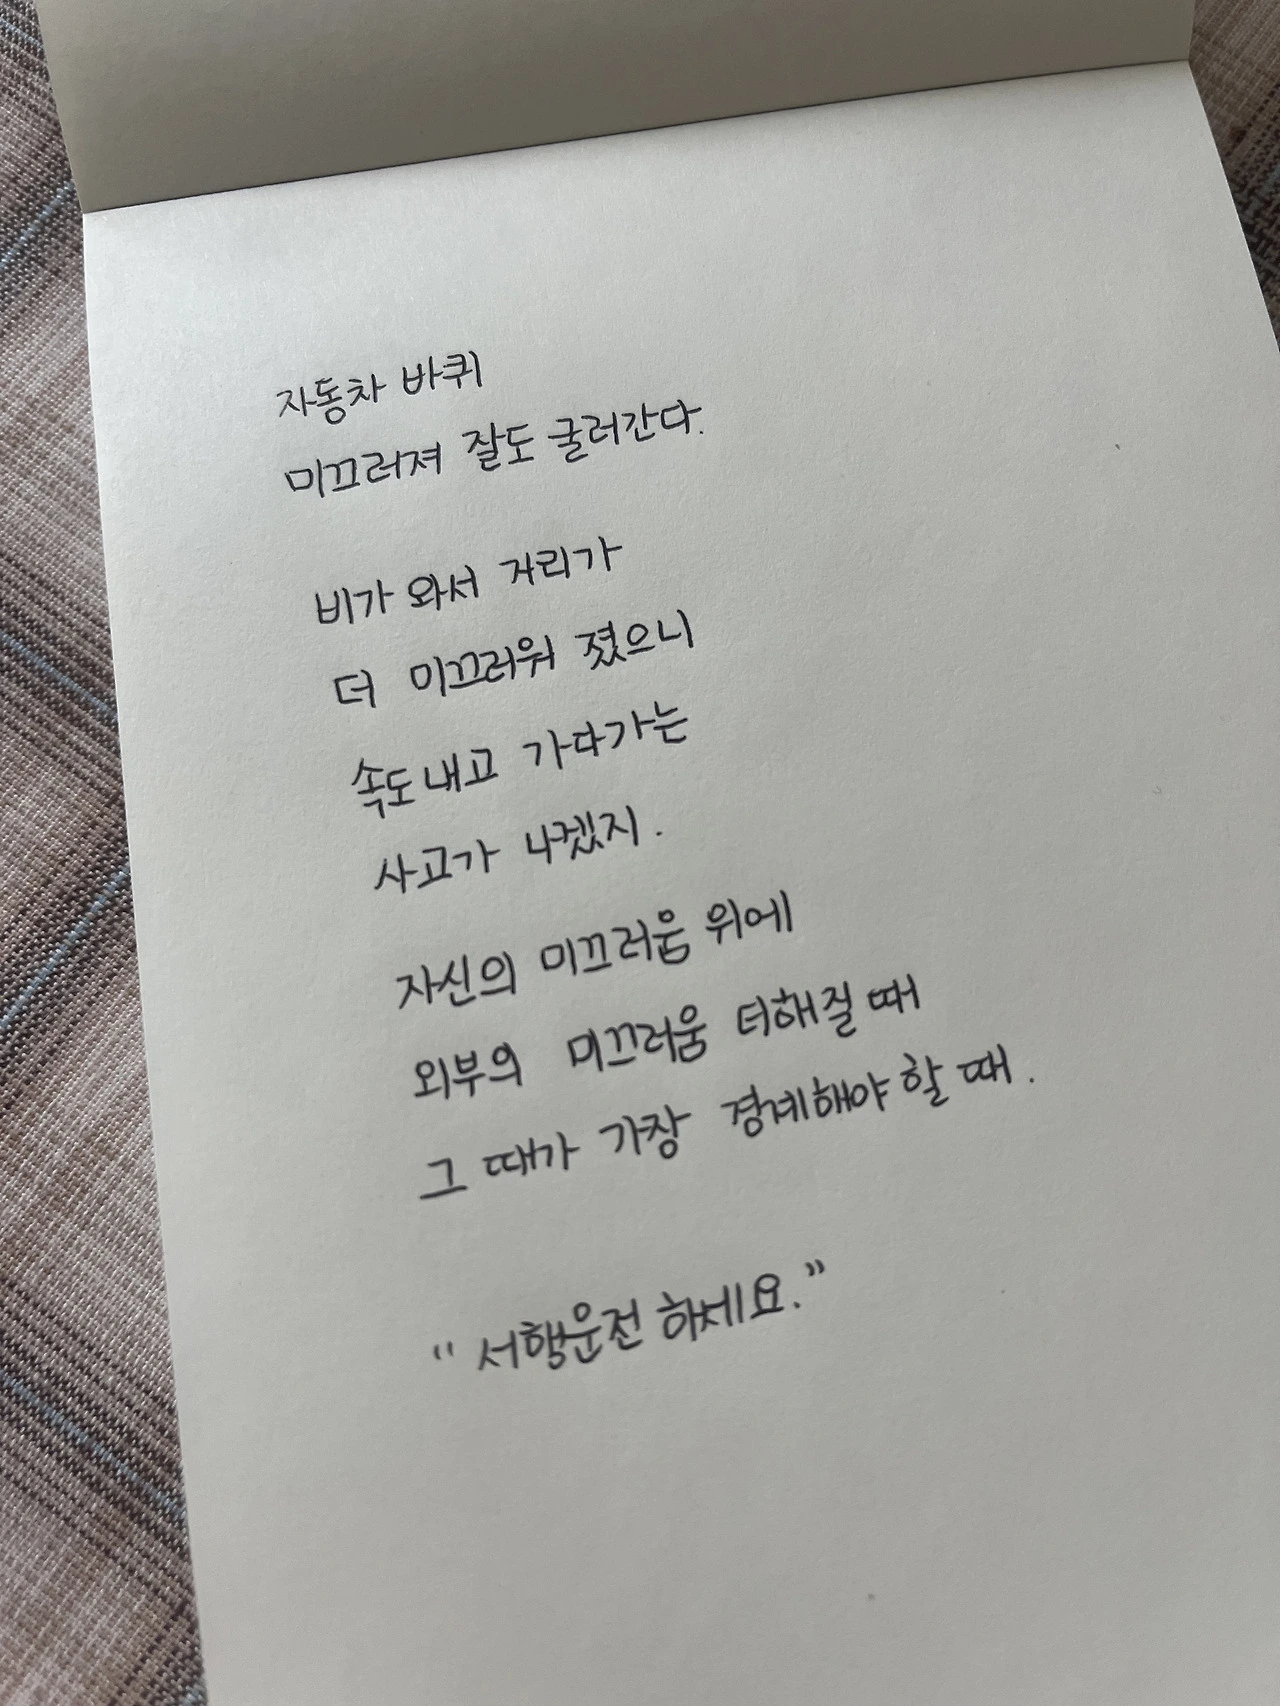 자동차 바퀴
미끄러져 잘도 굴러간다.
비가 와서 거리가
더 미끄러워 졌으니
속도내고 가다가는
사고가 나겠지.
자신의 미끄러움 위에
외부의 미끄러움 더해질 때
그 때가 가장 경계해야 할 때.
“서행운전 하세요.”